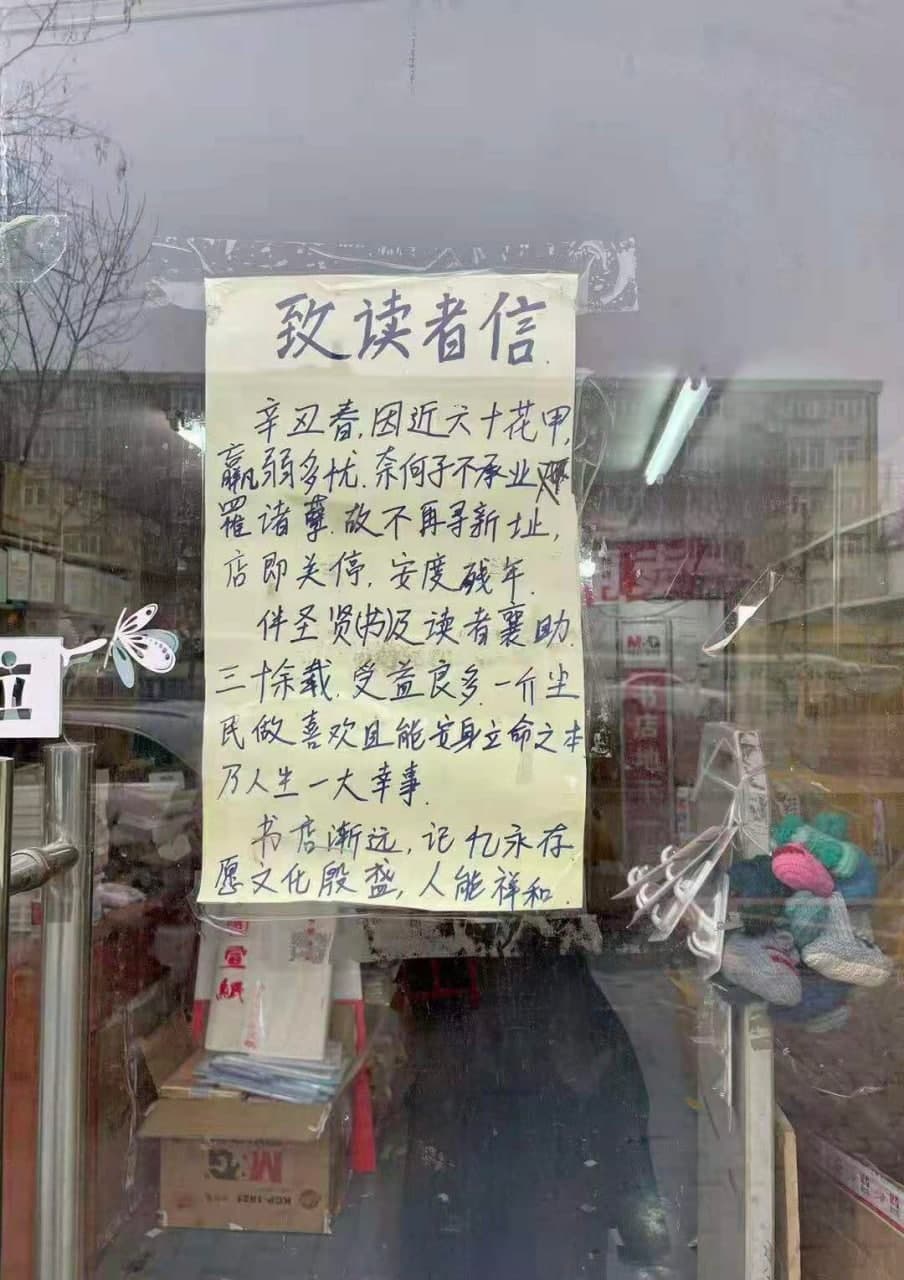 致读者信.
辛丑春,因近六十花甲,
羸弱多忧.奈何子不承业
罹诸孽.故不再寻新址,
店即关停,安度残年.
伴圣贤(书)及读者襄助
三十余载.受益良多.一介尘
民做喜欢且能安身立命之本
乃人生一大幸事.
书店渐远,记忆永存
愿文化殷盛,人能祥和.
M&G
宣紙
M&G
KCP-1821